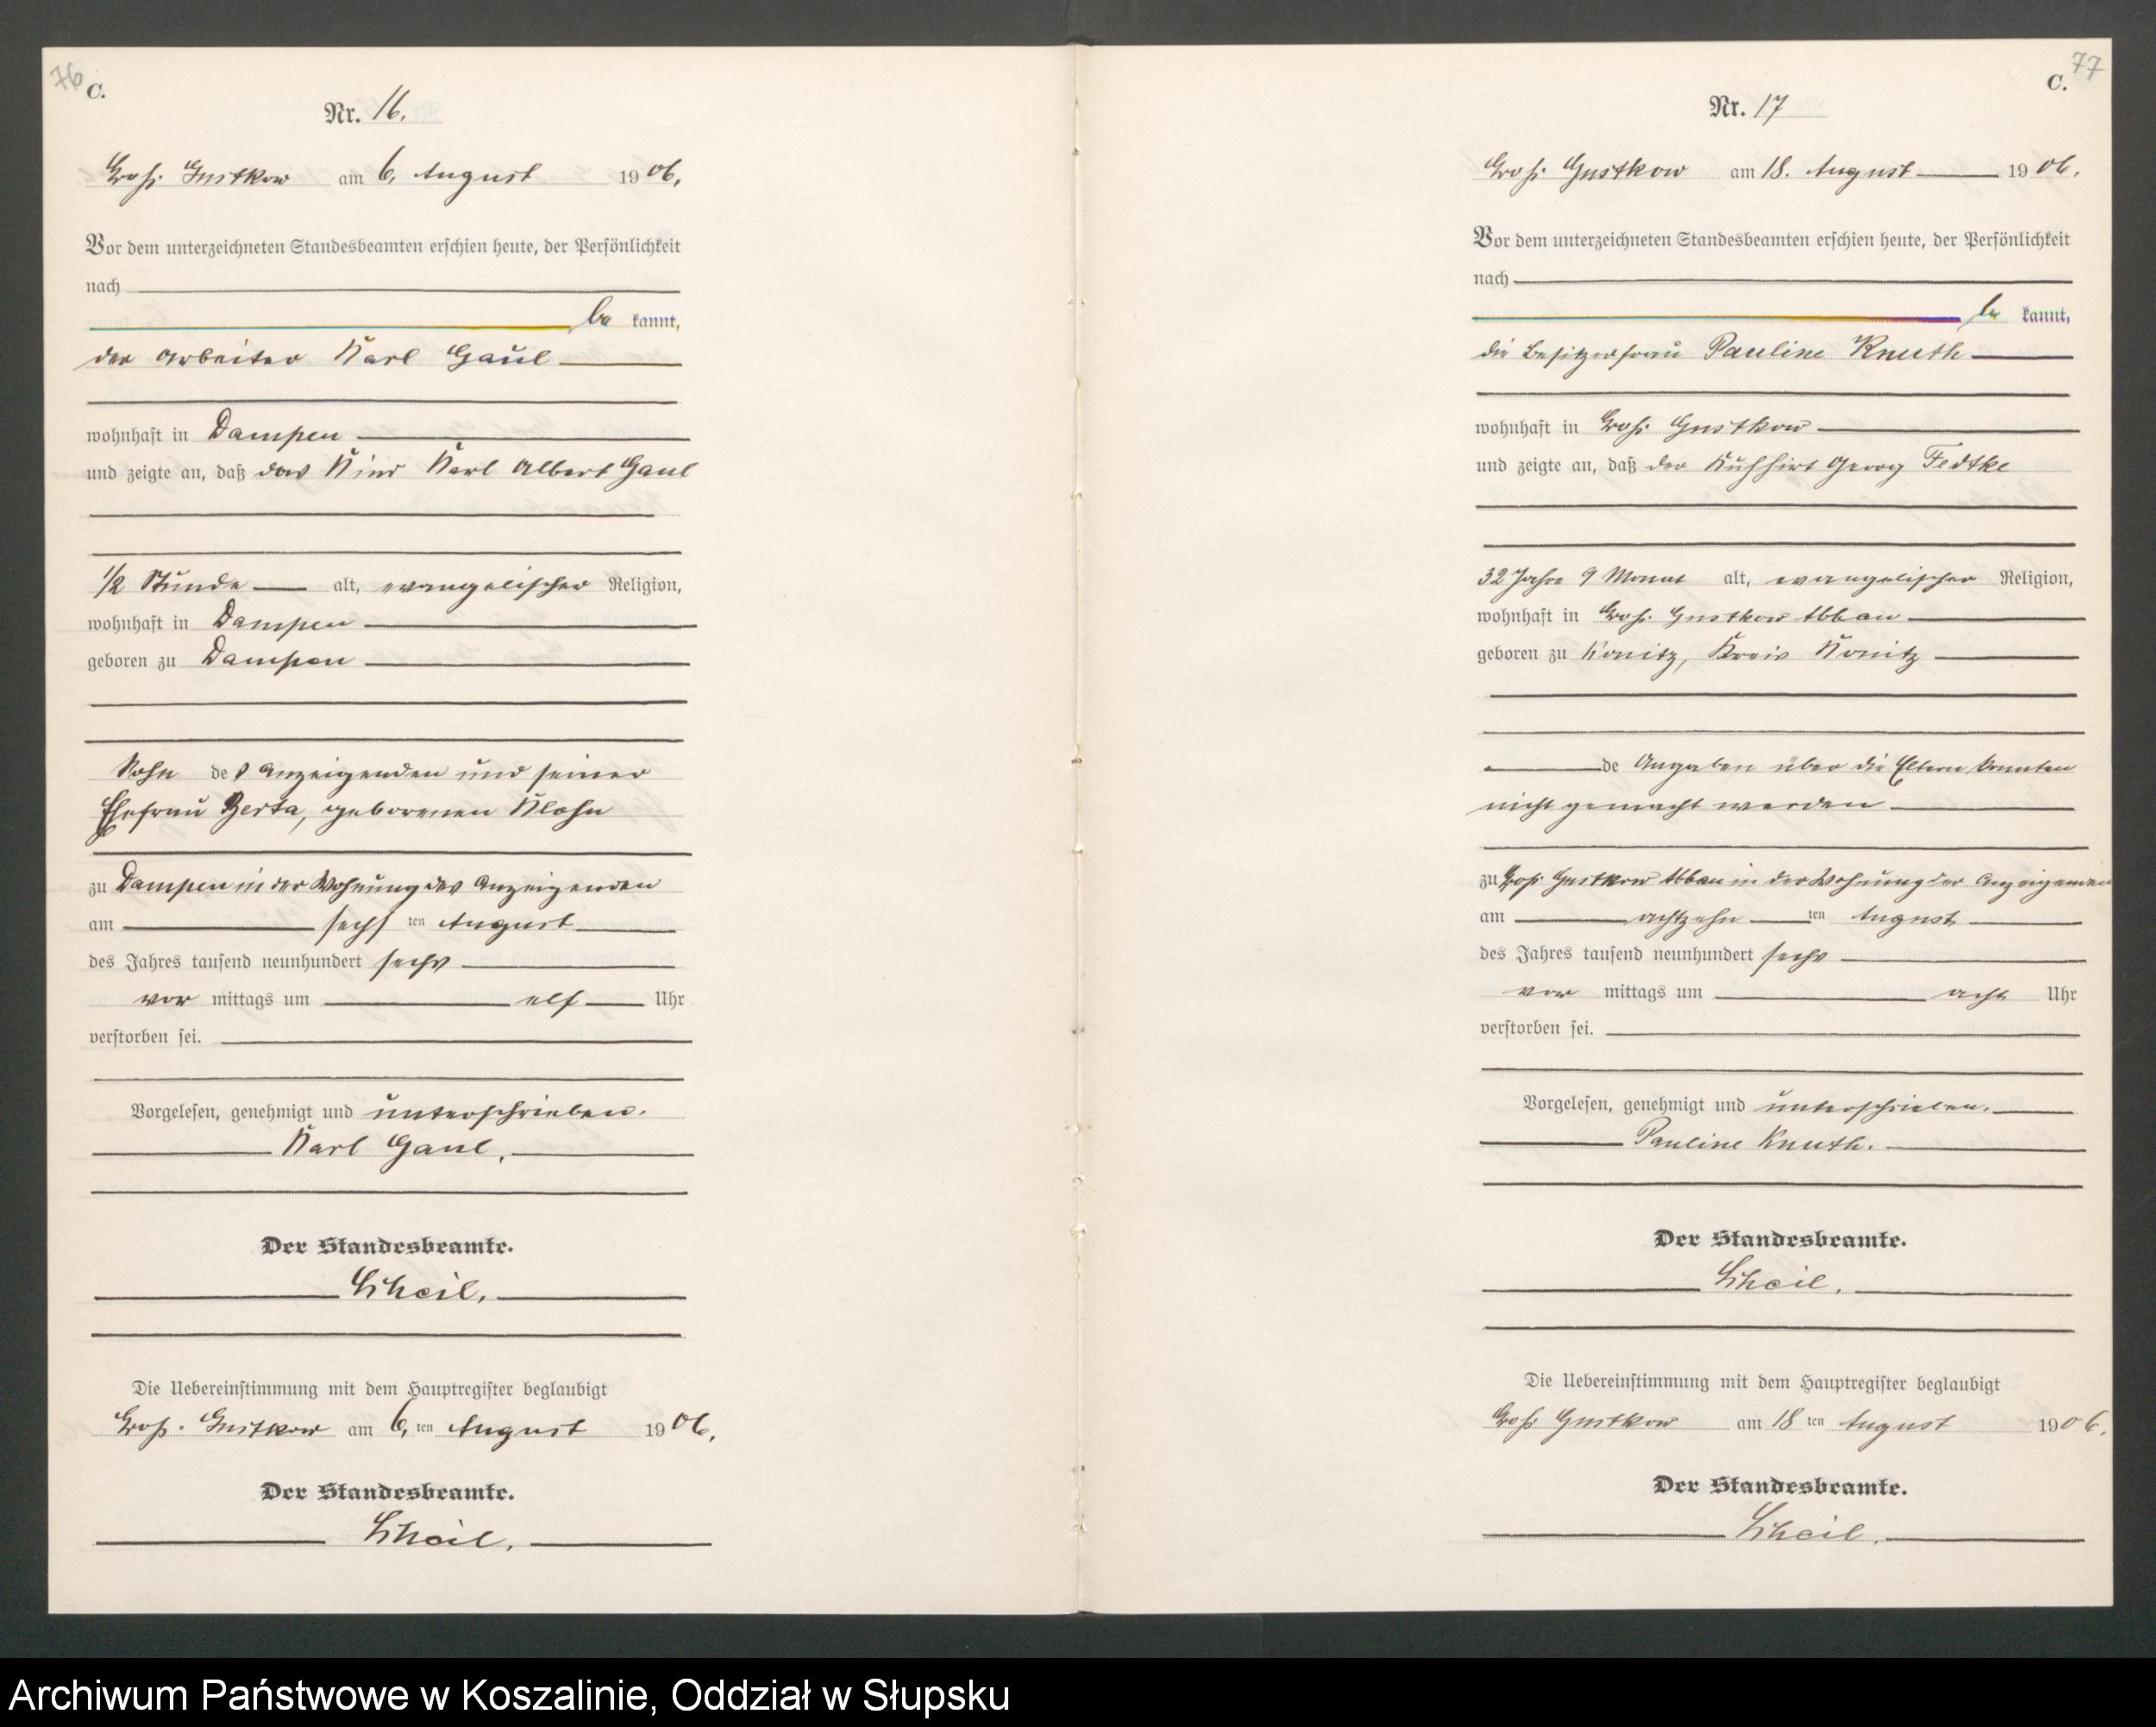 76 C.
Nr. 16.
Groß Gustkow am 6. August 1906.
Vor dem unterzeichneten Standesbeamten erschien heute, der Persönlichkeit
nach
be kannt,
der Arbeiter Karl Gaul
wohnhaft in Dampen
und zeigte an, daß das Kind Karl Albert Gaul
1/2 Stunde alt, evangelischer Religion,
wohnhaft in Dampen
geboren zu Dampen
Sohn des Anzeigenden und seiner
Ehefrau Berta, geborenen Klohn
zu Dampen in der Wohnung des Anzeigenden
am sechs ten August
des Jahres tausend neunhundert sechs
vor mittags um elf Uhr
verstorben sei.
Vorgelesen, genehmigt und unterschrieben.
Karl Gaul.
Der Standesbeamte.
Scheil.
Die Uebereinstimmung mit dem Hauptregister beglaubigt
Groß. Gustkow am 6. ten August 1906.
Der Standesbeamte.
Scheil.
77
C.
Nr. 17
Groß Gustkow am 18. August 1906.
Vor dem unterzeichneten Standesbeamten erschien heute, der Persönlichkeit
nach
be kannt,
die Besitzerfrau Pauline Knuth
wohnhaft in Groß Gustkow
und zeigte an, daß der Kuhhirt Georg Fedtke
32 Jahre 9 Monat alt, evangelischer Religion,
wohnhaft in Groß Gustkow Abbau
geboren zu Konitz, Kreis Konitz
de Angaben über die Eltern konnten
nicht gemacht werden
zu Groß Gustkow Abbau in der Wohnung der Anzeigenden
am achtzehn ten August
des Jahres tausend neunhundert sechs
vor mittags um acht Uhr
verstorben sei.
Vorgelesen, genehmigt und unterschrieben.
Pauline Knuth.
Der Standesbeamte.
Scheil.
Die Uebereinstimmung mit dem Hauptregister beglaubigt
Groß Gustkow am 18 ten August 1906.
Der Standesbeamte.
Scheil.
Archiwum Państwowe w Koszalinie, Oddział w Słupsku